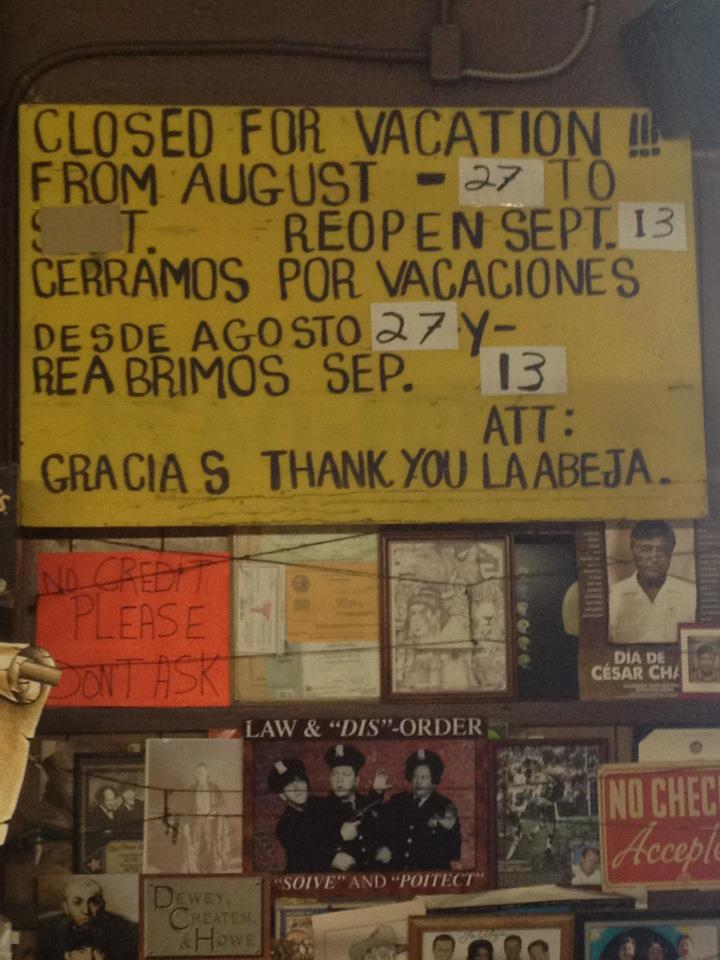 CLOSED FOR VACATION !!!
FROM AUGUST - 27 TO
REOPEN SEPT. 13
CERRAMOS POR VACACIONES
DESDE AGOSTO 27 Y-
REABRIMOS SEP. 13
ATT:
GRACIAS THANK YOU LA ABEJA.
NO CREDIT
PLEASE
DONT ASK
DIA DE
CÉSAR
LAW & "DIS"-ORDER
"SOIVE" AND "POITECT"
NO
Accept
DEWEY,
CHEATEM,
& HOWE